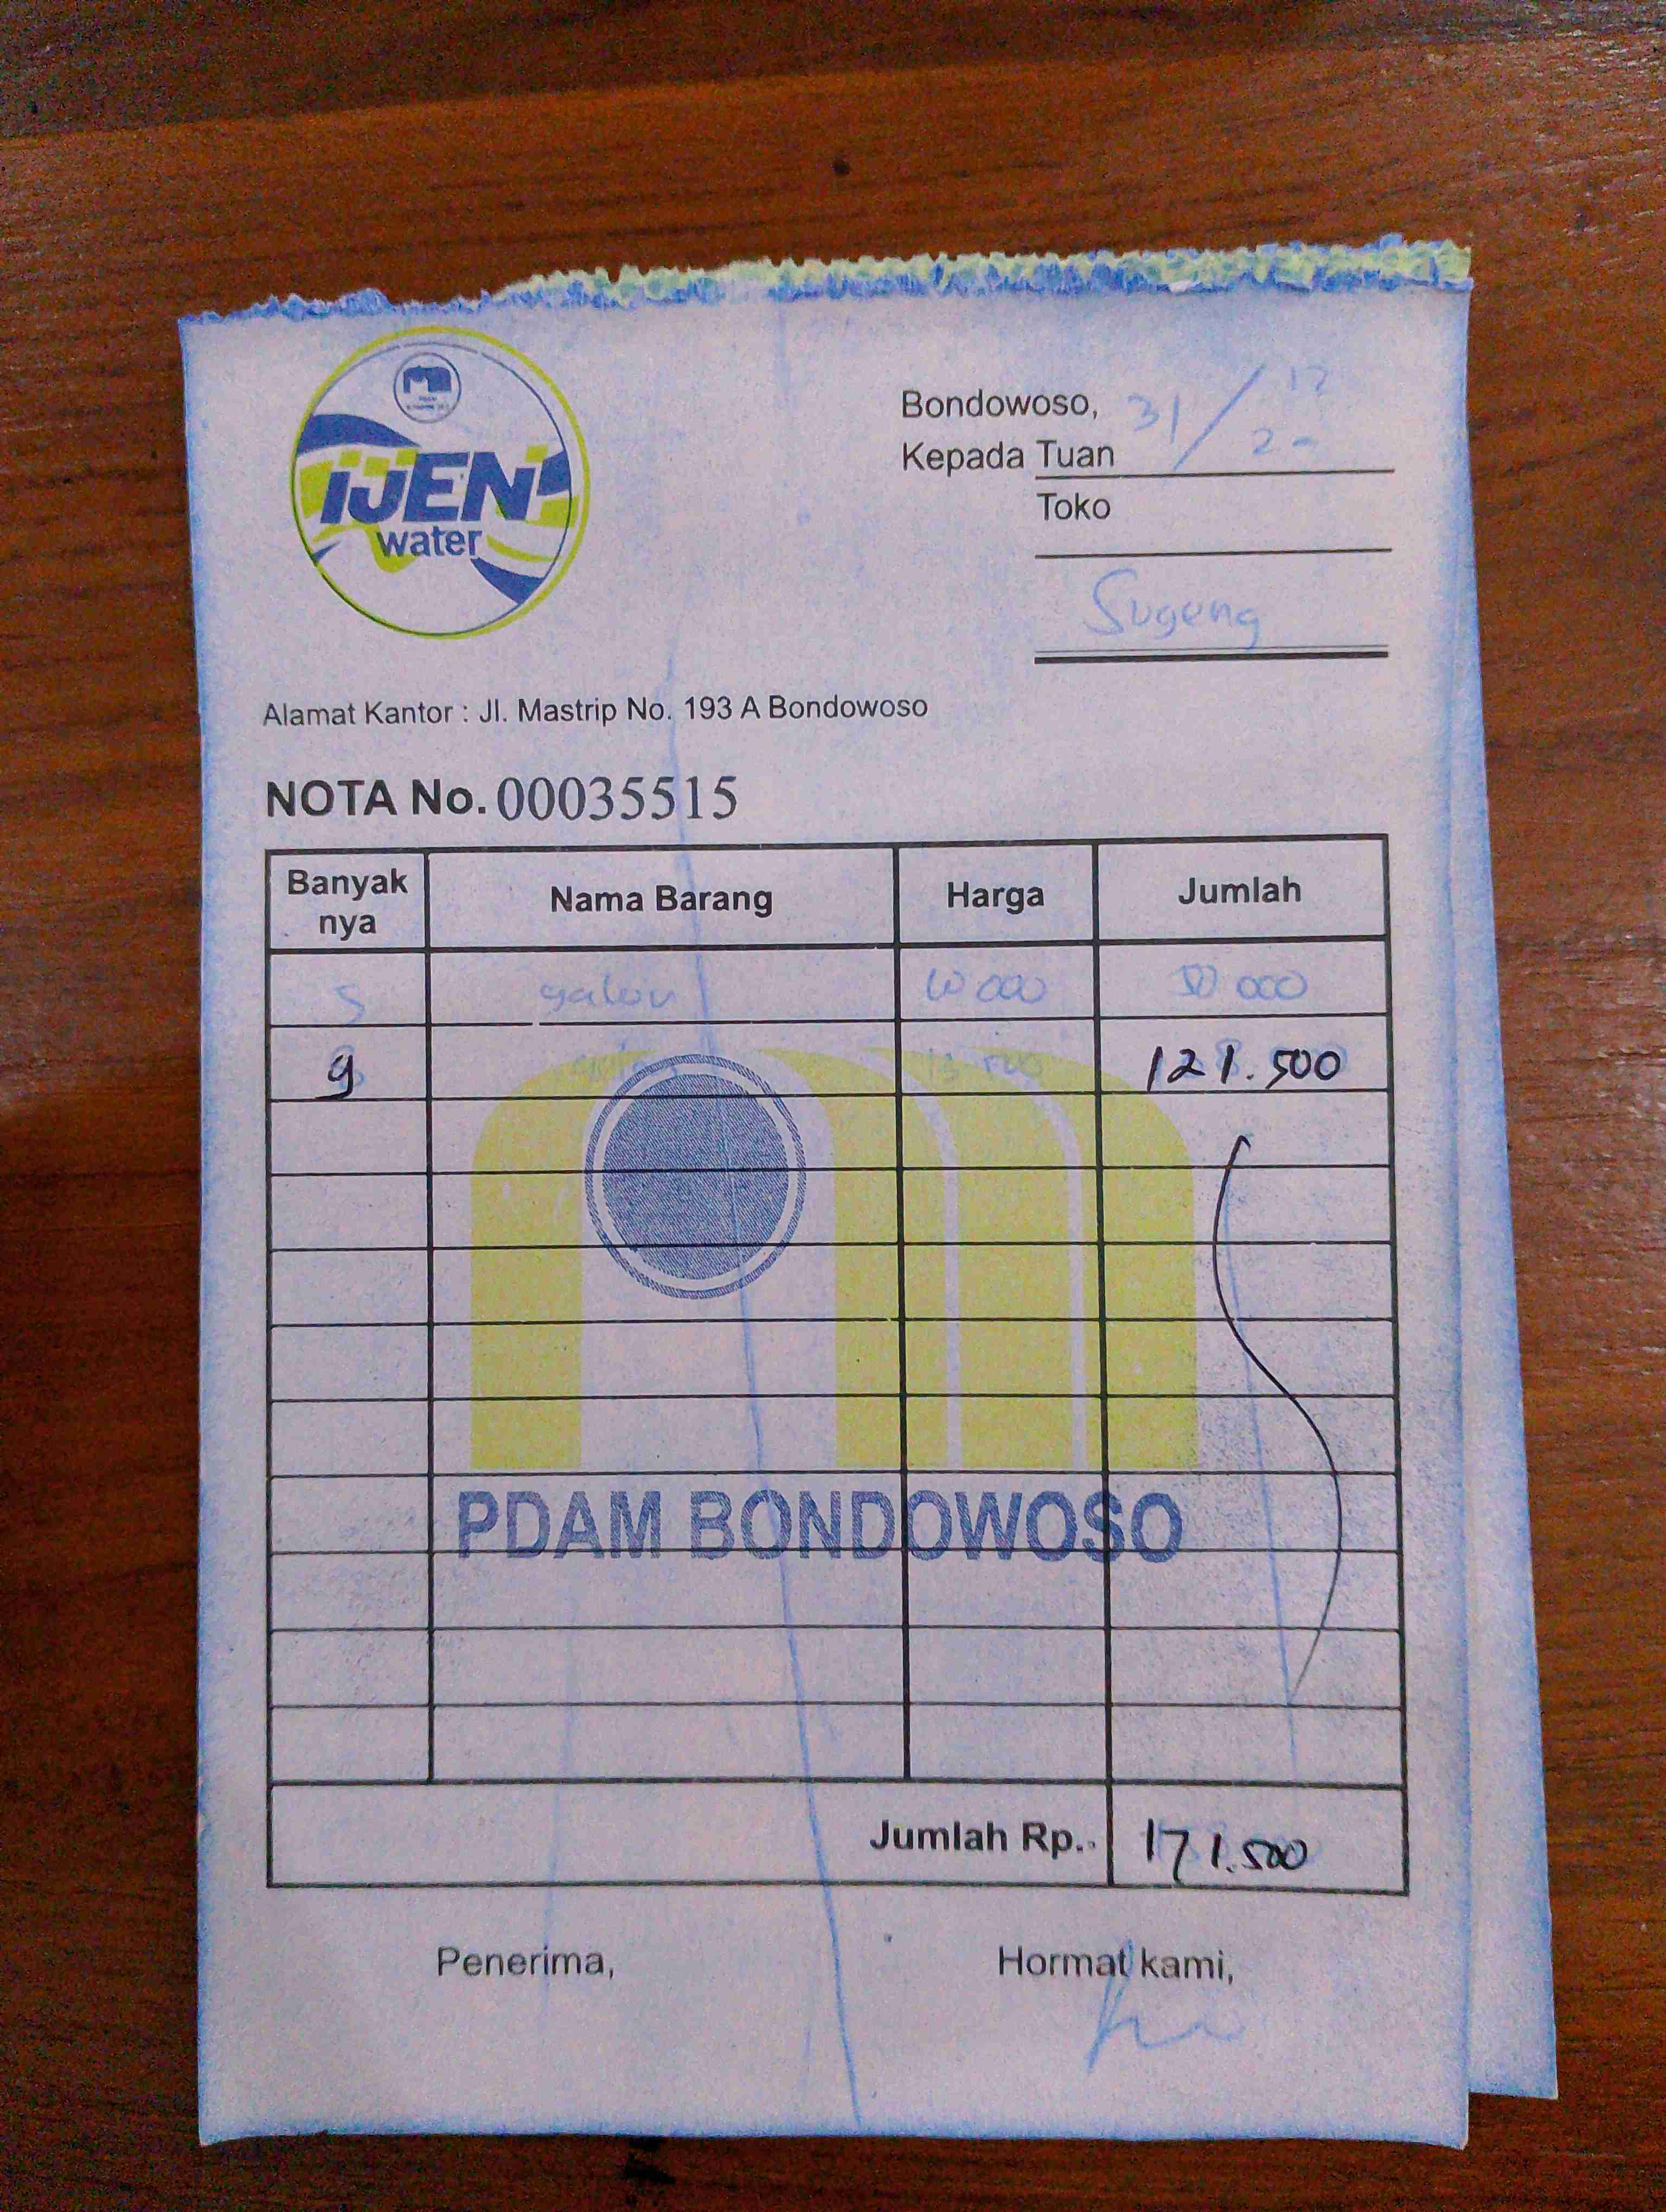 iJEN
water
Bondowoso, 31/12
Kepada Tuan 20
Toko
Sugeng
Alamat Kantor : Jl. Mastrip No. 193 A Bondowoso
NOTA No. 00035515
Banyak nya Nama Barang Harga Jumlah
5 galon 10 000 50 000
9 13 500 121.500
PDAM BONDOWOSO
Jumlah Rp.. 171.500
Penerima, Hormat kami,